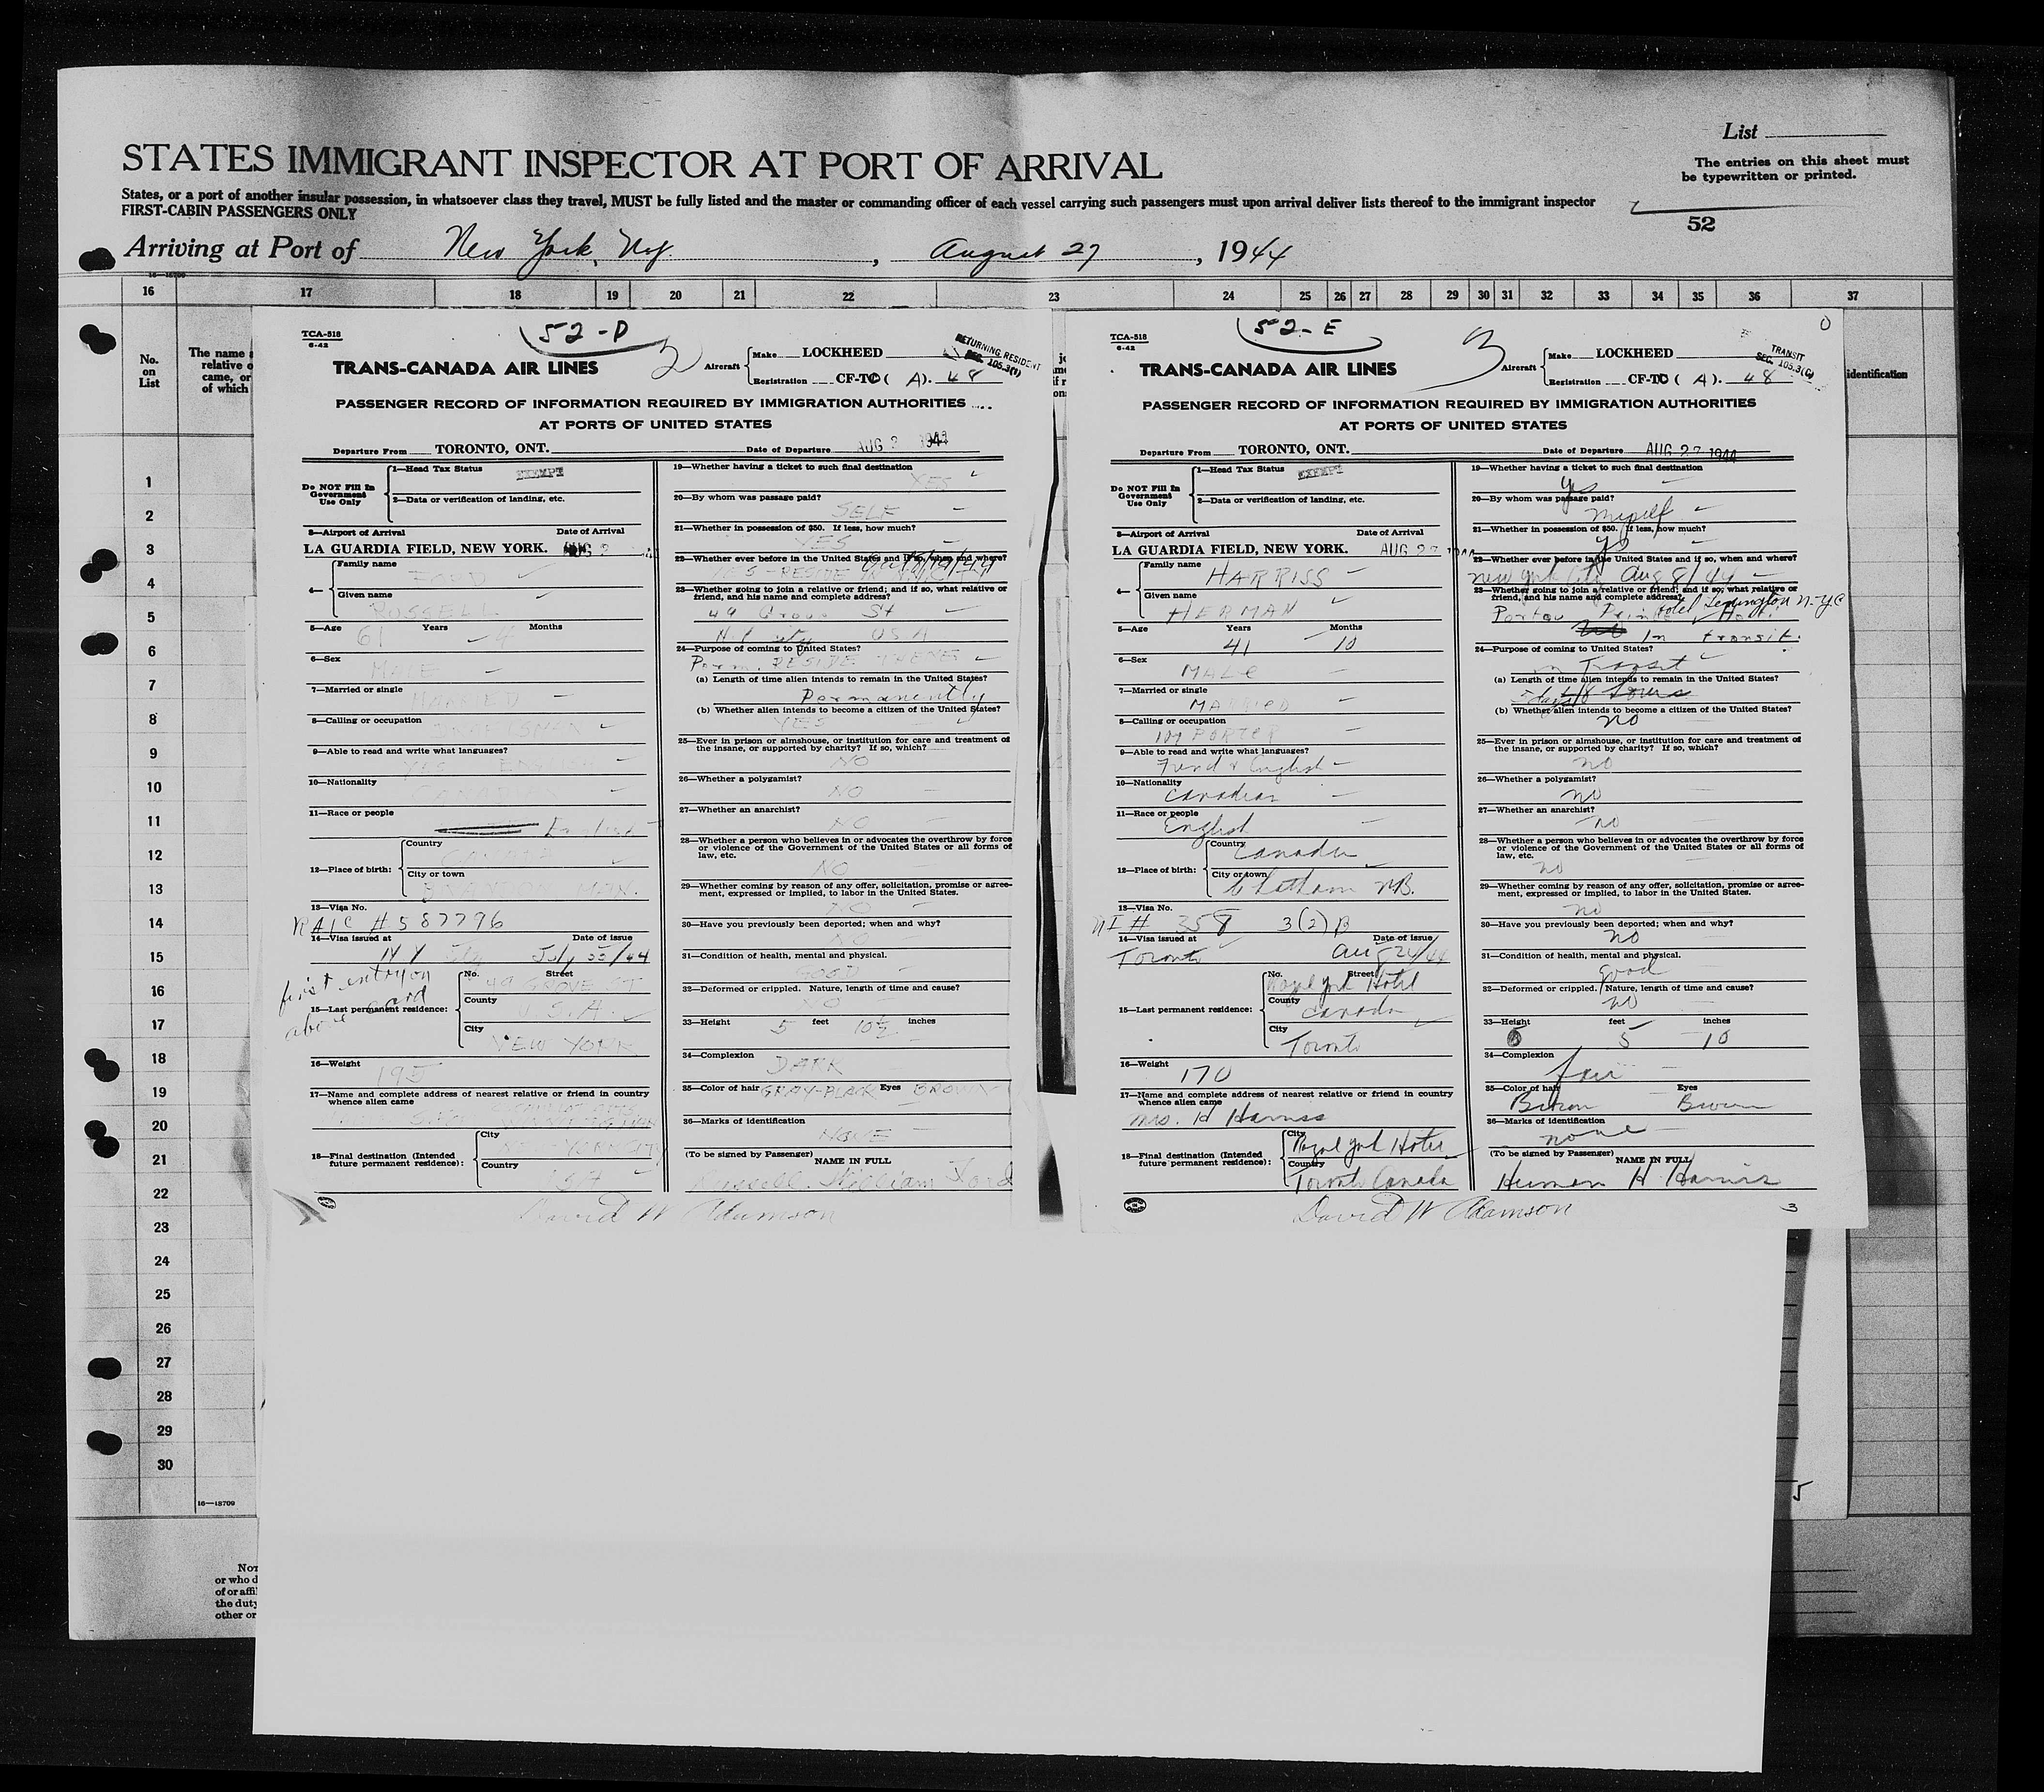 List
STATES IMMIGRANT INSPECTOR AT PORT OF ARRIVAL
The entries on this sheet must
be typewritten or printed.
States, or a port of another insular possession, in whatsoever class they travel, MUST be fully listed and the master or commanding officer of each vessel carrying such passengers must upon arrival deliver lists thereof to the immigrant inspector
FIRST-CABIN PASSENGERS ONLY
52
Arriving at Port of New York, N.Y. , August 27 , 1944
16-18709
16 17 18 19 20 21 22 23 24 25 26 27 28 29 30 31 32 33 34 35 36 37
No.
on
List
The name
relative o
came, or
of which
identification
1
2
3
4
5
6
7
8
9
10
11
12
13
14
15
16
17
18
19
20
21
22
23
24
25
26
27
28
29
30
16-18709
Not
or who d
of or affi
the duty
other or
5
TCA-518
6-42
52-D
TRANS-CANADA AIR LINES
Aircraft
Make LOCKHEED
Registration CF-TC ( A). 48
RETURNING RESIDENT
SEC. 105.3(1)
PASSENGER RECORD OF INFORMATION REQUIRED BY IMMIGRATION AUTHORITIES
AT PORTS OF UNITED STATES
Departure From TORONTO, ONT. Date of Departure AUG 2 1944
Do NOT Fill In
Government
Use Only
1—Head Tax Status EXEMPT
2—Data or verification of landing, etc.
3—Airport of Arrival Date of Arrival
LA GUARDIA FIELD, NEW YORK. AUG 2
4—
Family name
FORD
Given name
RUSSELL
5—Age 61 Years 4 Months
6—Sex
MALE
7—Married or single
MARRIED
8—Calling or occupation
9—Able to read and write what languages?
YES ENGLISH
10—Nationality
11—Race or people
English
12—Place of birth:
Country
CANADA
City or town
MAN.
13—Visa No.
RAIC # 587796
14—Visa issued at Date of issue
N Y City July /44
first entry on
above card
15—Last permanent residence:
No. Street
49 GROVE ST
County
U.S.A.
City
NEW YORK
16—Weight
195
17—Name and complete address of nearest relative or friend in country
whence alien came
18—Final destination (Intended
future permanent residence):
City
NEW YORK CITY
Country
USA
19—Whether having a ticket to such final destination
YES
20—By whom was passage paid?
SELF
21—Whether in possession of $50. If less, how much?
YES
22—Whether ever before in the United States and if so, when and where?
YES - RESIDE
23—Whether going to join a relative or friend; and if so, what relative or
friend, and his name and complete address?
49 Grove St
N.Y. city USA
24—Purpose of coming to United States?
Perm. RESIDE THERE
(a) Length of time alien intends to remain in the United States?
Permanently
(b) Whether alien intends to become a citizen of the United States?
YES
25—Ever in prison or almshouse, or institution for care and treatment of
the insane, or supported by charity? If so, which?
NO
26—Whether a polygamist?
NO
27—Whether an anarchist?
NO
28—Whether a person who believes in or advocates the overthrow by force
or violence of the Government of the United States or all forms of
law, etc.
NO
29—Whether coming by reason of any offer, solicitation, promise or agree-
ment, expressed or implied, to labor in the United States.
NO
30—Have you previously been deported; when and why?
NO
31—Condition of health, mental and physical.
GOOD
32—Deformed or crippled. Nature, length of time and cause?
NO
33—Height 5 feet 10½ inches
34—Complexion
DARK
35—Color of hair GRAY-BLACK Eyes BROWN
36—Marks of identification
NONE
(To be signed by Passenger) NAME IN FULL
Russell William Ford
David W Adamson
TCA-518
6-42
52-E
3
0
TRANS-CANADA AIR LINES
Aircraft
Make LOCKHEED
Registration CF-TC ( A). 48
TRANSIT
SEC. 105.3(C)
PASSENGER RECORD OF INFORMATION REQUIRED BY IMMIGRATION AUTHORITIES
AT PORTS OF UNITED STATES
Departure From TORONTO, ONT. Date of Departure AUG 27 1944
Do NOT Fill In
Government
Use Only
1—Head Tax Status EXEMPT
2—Data or verification of landing, etc.
3—Airport of Arrival Date of Arrival
LA GUARDIA FIELD, NEW YORK. AUG 27 1944
4—
Family name
HARRISS
Given name
HERMAN
5—Age Years Months
41 10
6—Sex
MALE
7—Married or single
MARRIED
8—Calling or occupation
PORTER
9—Able to read and write what languages?
French & English
10—Nationality
Canadian
11—Race or people
English
12—Place of birth:
Country
Canada
City or town
Chatham N.B.
13—Visa No.
NI # 358 3(2) B
14—Visa issued at Date of issue
Toronto Aug 24/44
15—Last permanent residence:
No. Street
Royal York Hotel
County
Canada
City
Toronto
16—Weight
170
17—Name and complete address of nearest relative or friend in country
whence alien came
Mrs. H Harriss
18—Final destination (Intended
future permanent residence):
City
Royal York Hotel
Country
Toronto Canada
19—Whether having a ticket to such final destination
Yes
20—By whom was passage paid?
Myself
21—Whether in possession of $50. If less, how much?
yes
22—Whether ever before in the United States and if so, when and where?
New York City Aug 8/44
23—Whether going to join a relative or friend; and if so, what relative or
friend, and his name and complete address?
Hotel Lexington N.Y.C
In transit.
24—Purpose of coming to United States?
in Transit
(a) Length of time alien intends to remain in the United States?
(b) Whether alien intends to become a citizen of the United States?
no
25—Ever in prison or almshouse, or institution for care and treatment of
the insane, or supported by charity? If so, which?
no
26—Whether a polygamist?
no
27—Whether an anarchist?
no
28—Whether a person who believes in or advocates the overthrow by force
or violence of the Government of the United States or all forms of
law, etc.
no
29—Whether coming by reason of any offer, solicitation, promise or agree-
ment, expressed or implied, to labor in the United States.
no
30—Have you previously been deported; when and why?
no
31—Condition of health, mental and physical.
good
32—Deformed or crippled. Nature, length of time and cause?
no
33—Height feet inches
5 10
34—Complexion
fair
35—Color of hair Eyes
Brown Brown
36—Marks of identification
none
(To be signed by Passenger) NAME IN FULL
Herman H Harriss
David W Adamson
3